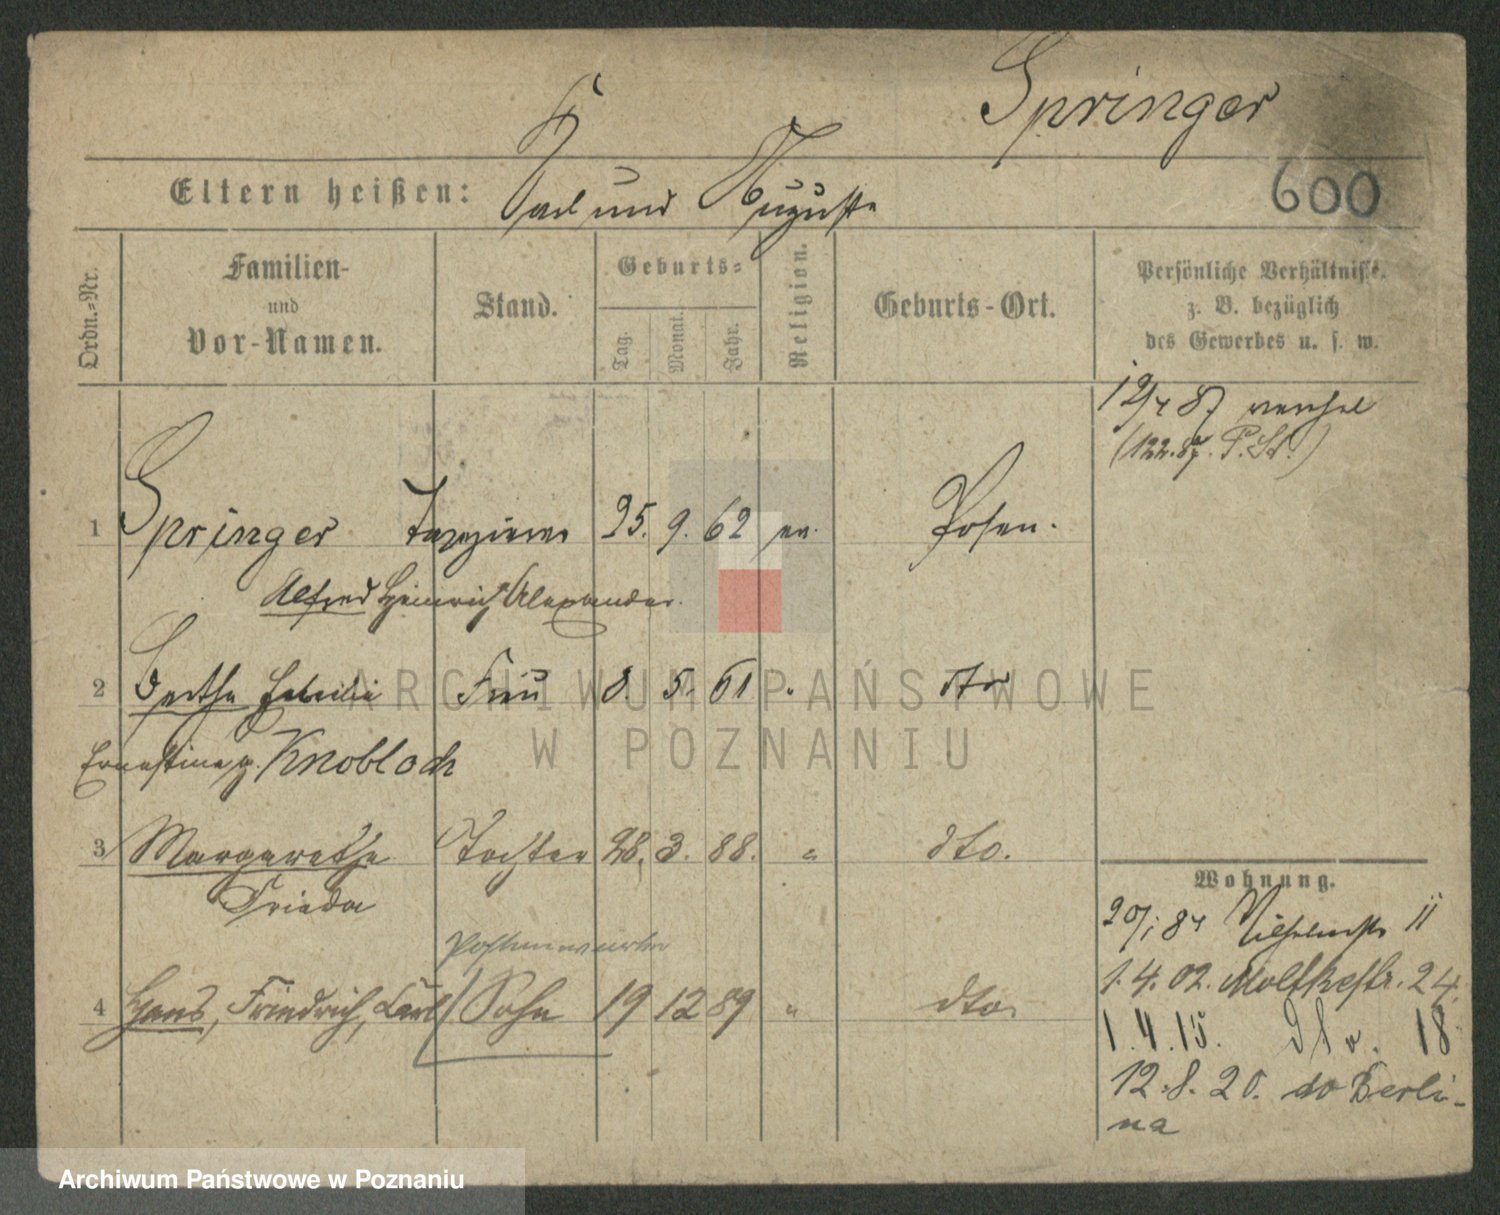 Springer
600
Eltern heißen: Karl und Auguste
Ordn.-Nr.
Familien-
und
Vor-Namen.
Stand.
Geburts-
Tag.
Monat.
Jahr.
Religion.
Geburts-Ort.
Persönliche Verhältnisse.
z. B. bezüglich
des Gewerbes u. s. w.
12/4 87
(122.87. P. St.)
1 Springer Tapezierer 25. 9. 62 ev. Posen.
Alfred Heinrich Alexander.
2 Bertha Frau 8. 5. 61 " dto
Ernestine g. Knobloch
3 Margarethe Tochter 28. 3. 88. " dto.
Frieda
4 Hans, Friedrich, Carl Sohn 19 12 89 " dto.
Wohnung.
Wilhelmstr 11
1.4.02. Moltkestr. 24.
1.4.15. 18
12.8.20. do Berli-
na
ARCHIWUM PAŃSTWOWE
W POZNANIU
Archiwum Państwowe w Poznaniu